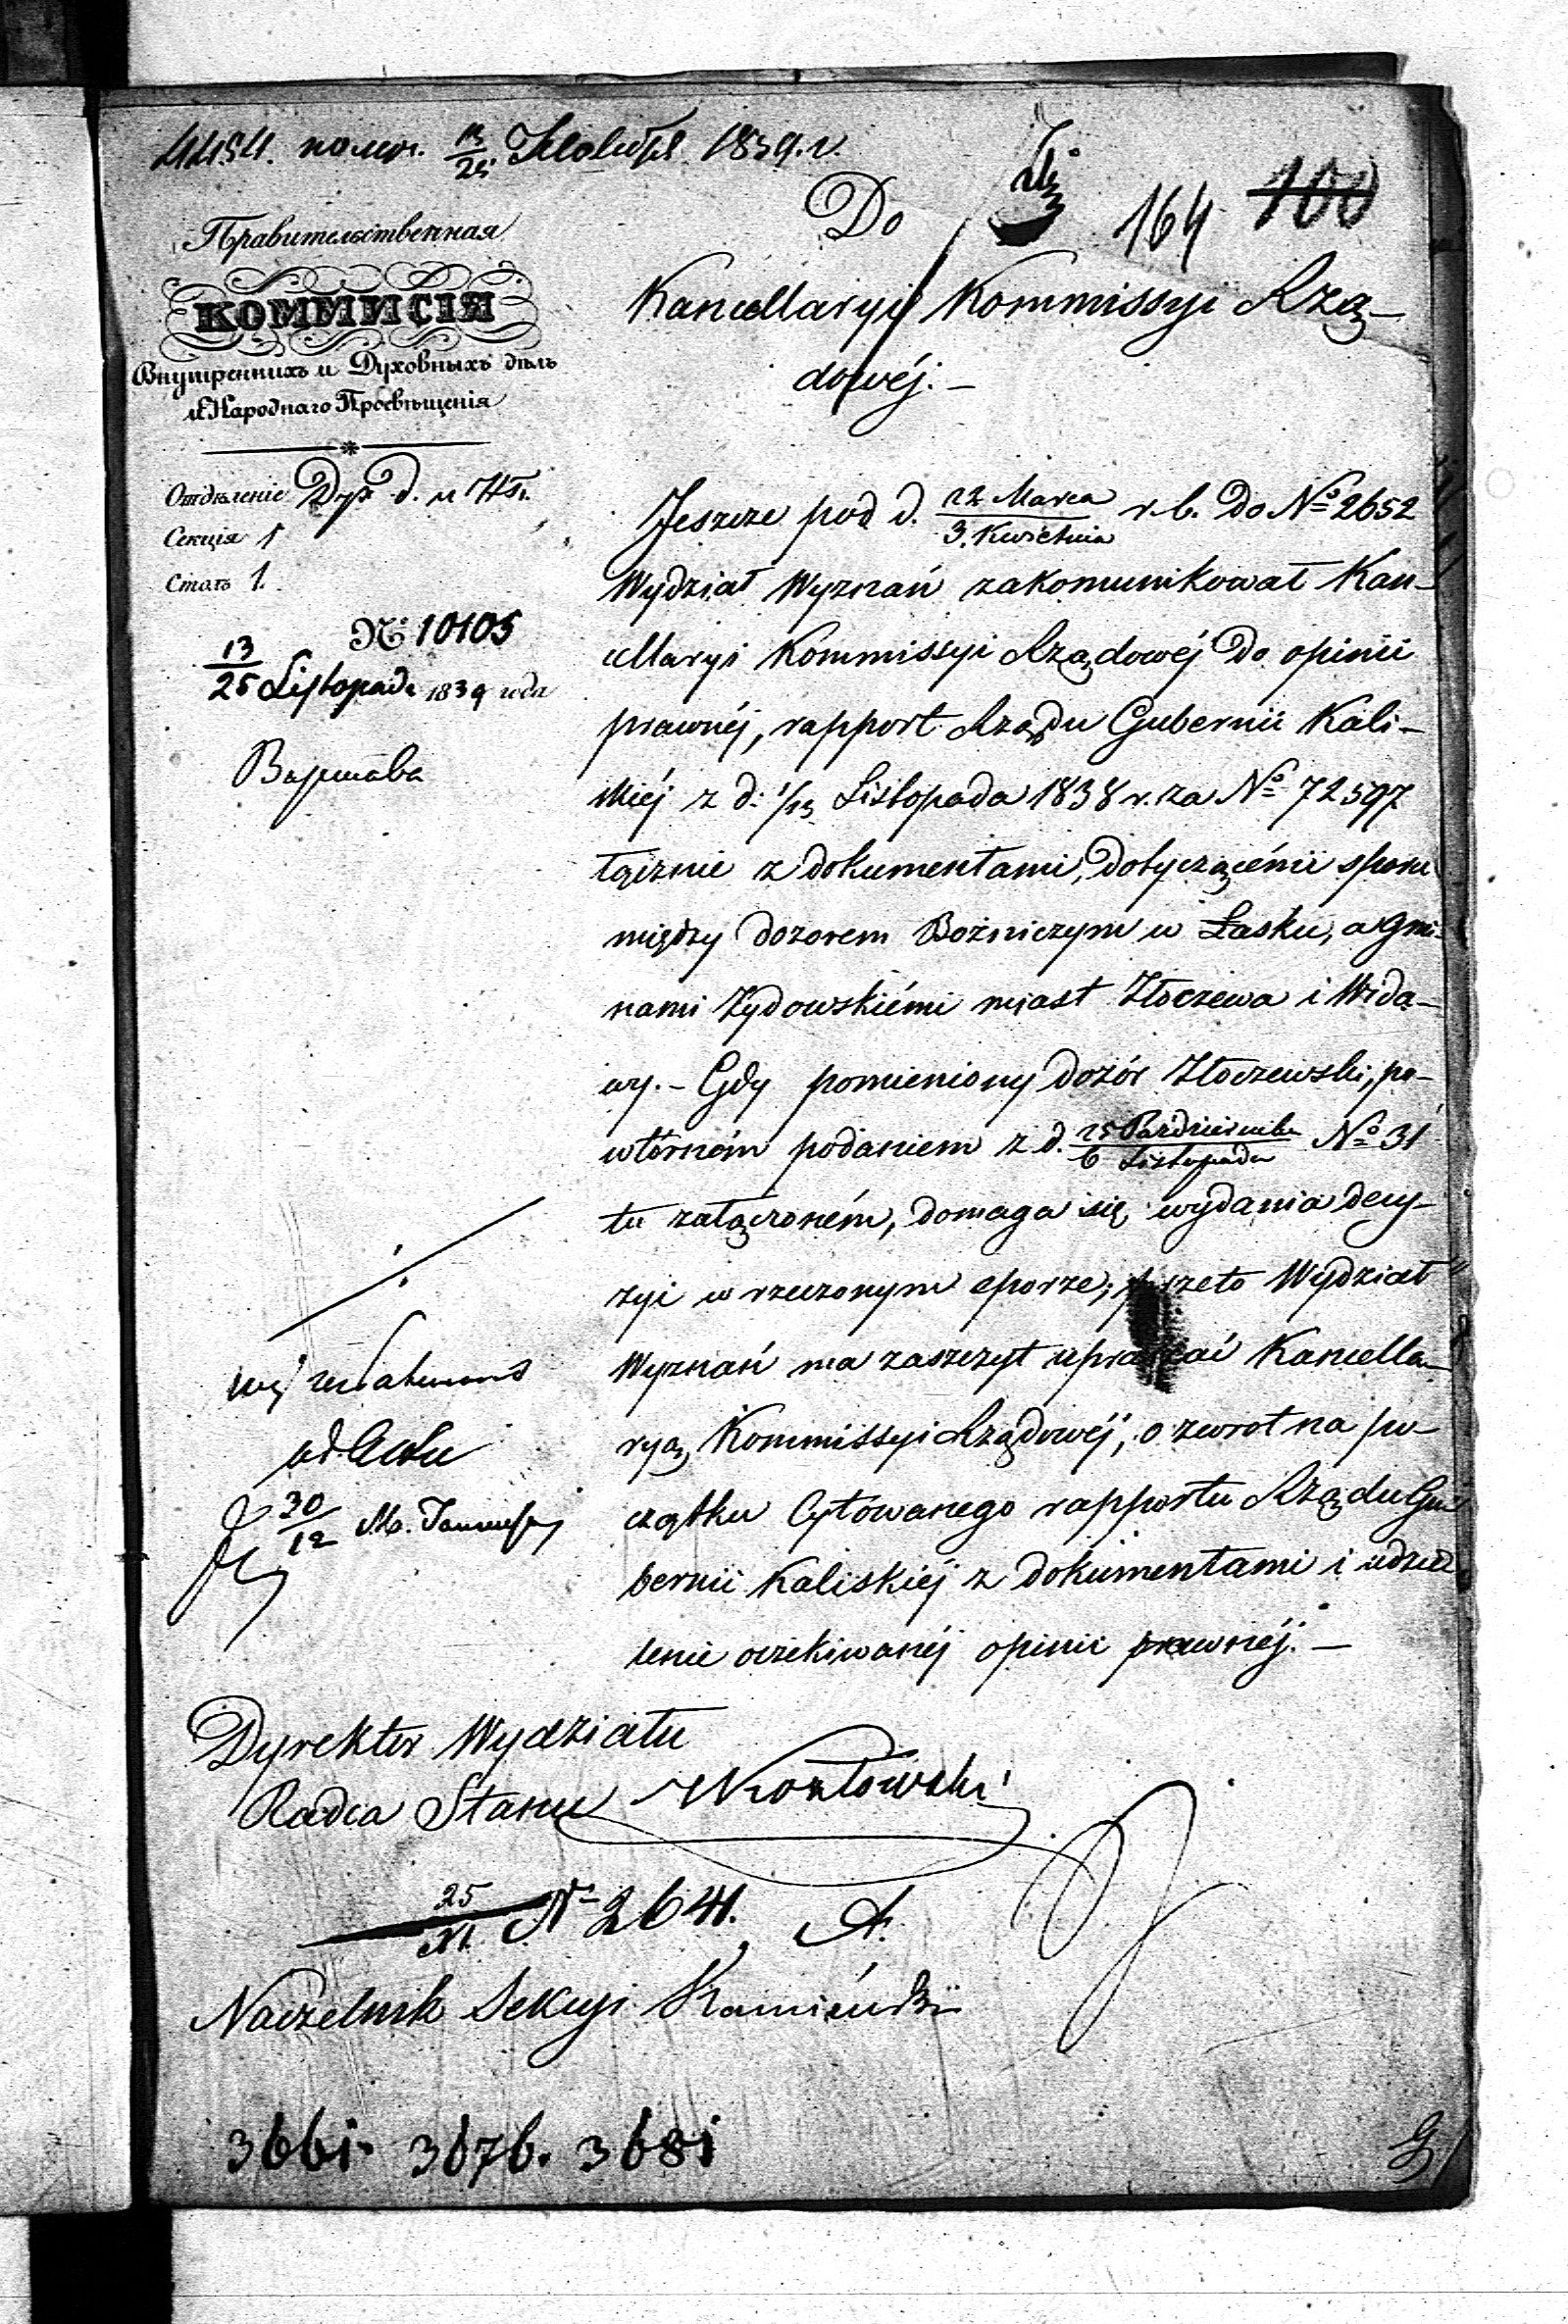 4454. получ. 13/25 Ноября 1839. г.
164 100
Правительственная
КОММИСІЯ
Внутреннихъ и Духовныхъ дѣлъ
и Народнаго Просвѣщенія
Отдѣленіе Дух. д.
Секція 1
Столъ 1.
№ 10105
13/25 Listopada 1839 года
Варшава
Do
Kancellaryi Kommissyi Rzą-
dowéj. –
Jeszcze pod d. 22 Marca / 3. Kwietnia r. b. Do No 2652
Wydział Wyznań zakomunikował Kan-
cellaryi Kommissyi Rządowéj Do opinii
prawnéj, rapport Rządu Gubernii Kali-
skiéj z d: 1/13 Listopada 1838 r. za No 72597
łącznie z dokumentami, dotyczącémi sporu
między dozorem Bożniczym w Łasku, a gmi-
nami Żydowskiémi miast Złoczewa i Wida-
wy. – Gdy pomieniony dozór Złoczewski, po-
wtórném podaniem z d. 25 Października / 6 Listopada No 31
tu załączoném, domaga się wydania decy-
zyi w rzeczonym sporze; przeto Wydział
Wyznań ma zaszczyt upraszać Kancella-
ryą Kommissyi Rządowéj, o zwrot na po-
czątku Cytowanego rapportu Rządu Gu-
bernii Kaliskiéj z dokumentami i udzie-
lenie oczekiwanéj opinii prawnéj. –
./.
30/12
Dyrektor Wydziału
Radca Stanu Kozłowski
25/XI. No 2641.
Naczelnik Sekcyi Kamiński
3661. 3676. 3681